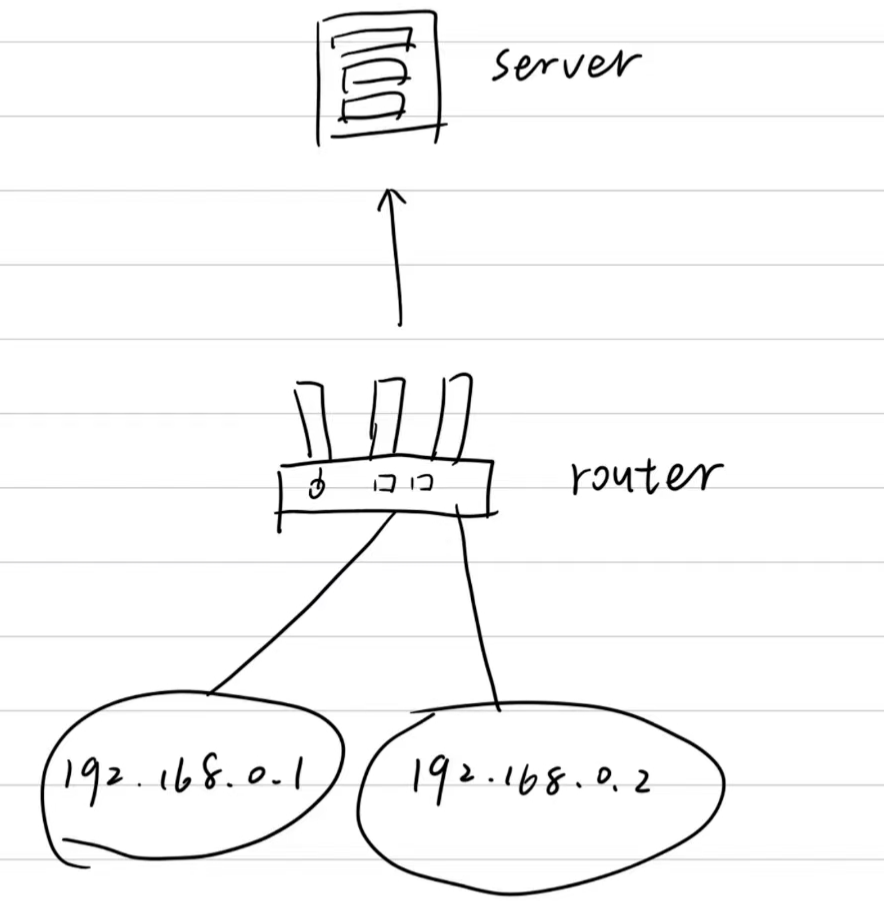 server
router
192.168.0.1
192.168.0.2